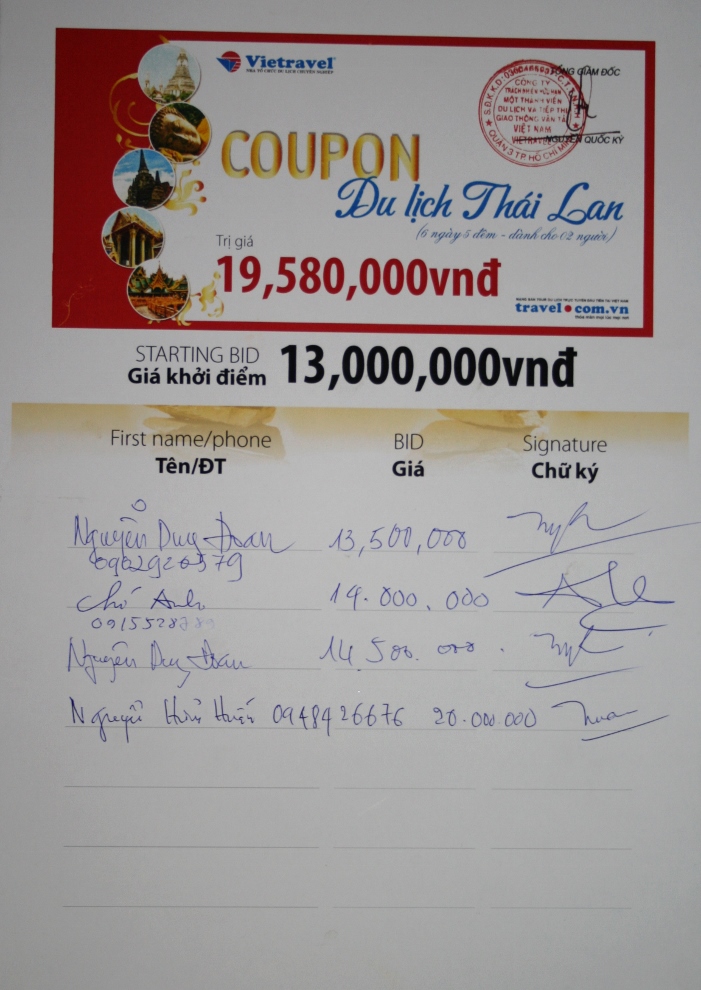 Vietravel
NHÀ TỔ CHỨC DU LỊCH CHUYÊN NGHIỆP
TỔNG GIÁM ĐỐC
CÔNG TY
TRÁCH NHIỆM HỮU HẠN
MỘT THÀNH VIÊN
DU LỊCH VÀ TIẾP THỊ
GIAO THÔNG VẬN TẢI
VIỆT NAM
VIETRAVEL
QUẬN 3 TP. HỒ CHÍ MINH
NGUYỄN QUỐC KỲ
COUPON
Du lịch Thái Lan
(6 ngày 5 đêm - dành cho 02 người)
Trị giá
19,580,000vnđ
travel.com.vn
STARTING BID
Giá khởi điểm
13,000,000vnđ
First name/phone BID Signature
Tên/ĐT Giá Chữ ký
Nguyễn Duy Đoan 13,500,000
0902920579
Anh 14.000.000
Nguyễn Duy Đoan 14.500.000.
Nguyễn Hữu 0948426676 20.000.000